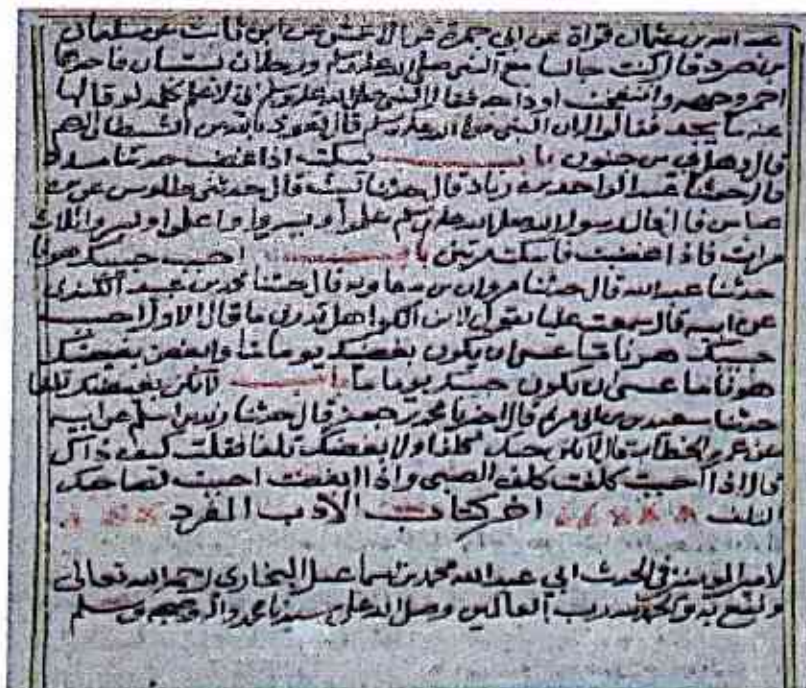 عبد الله بن عثمان قراة عن ابي حمزة عن الاعمش عن ابن ثابت عن سليمان
بن صرد قال كنت جالسا مع النبي صلى الله عليه وسلم ورجلان يستبان فاحدهما
احمر وجهه وانتفخت اوداجه فقال النبي صلى الله عليه وسلم اني لاعلم كلمة لو قالها
عنه ما يجد فقالوا له ان النبي صلى الله عليه وسلم قال تعوذ بالله من الشيطان الرجيم
قال وهل بي من جنون باب يسكت اذا غضب حدثنا مسدد
قال حدثنا عبد الواحد بن زياد قال حدثنا ليث قال حدثني طاوس عن بن
عباس قال قال رسول الله صلى الله عليه وسلم علموا ويسروا علموا ويسروا ثلاث
مرات فاذا غضبت فاسكت مرتين باب احبب حبيبك هونا
حدثنا عبد الله قال حدثنا مروان بن معاوية قال حدثنا محمد بن عبيد الكندي
عن ابيه قال سمعت عليا يقول لابن الكوا هل تدري ما قال الاول احبب
حبيبك هونا ما عسى ان يكون بغيضك يوما ما وابغض بغيضك
هونا ما عسى ان يكون حبيبك يوما ما باب لا يكن بغضك تلفا
حدثنا سعيد بن ابي مريم قال اخبرنا محمد بن جعفر قال حدثنا زيد بن اسلم عن ابيه
عن عمر بن الخطاب قال لا يكن حبك كلفا ولا بغضك تلفا فقلت كيف ذاك
قال اذا احببت كلفت كلف الصبي واذا ابغضت احببت لصاحبك
التلف اخر كتاب الادب المفرد
لامير المومنين في الحديث ابي عبد الله محمد بن اسماعيل البخاري رحمه الله تعالى
ونفع به والحمد لله رب العالمين وصلى الله على سيدنا محمد واله وصحبه وسلم